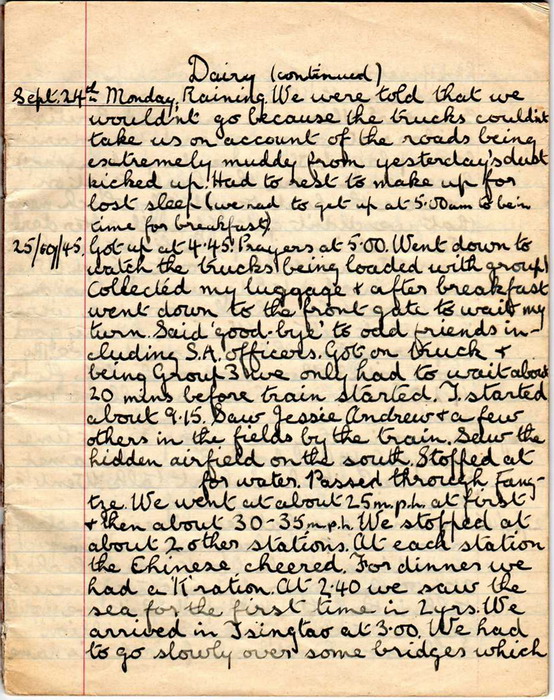 Dairy (continued)
Sept. 24th Monday, Raining. We were told that we
wouldn't go because the trucks couldn't
take us on account of the roads being
extremely muddy from yesterday's dust
kicked up. Had to rest to make up for
lost sleep (we had to get up at 5.00am to be in
time for breakfast)
25/09/45. Got up at 4.45. Prayers at 5.00. Went down to
watch the trucks being loaded with group 1
Collected my luggage & after breakfast
went down to the front gate to wait my
turn. Said 'good-bye' to odd friends in-
cluding S.A. officers. Got on truck &
being Group 3 we only had to wait about
20 mins before train started. T. started
about 9.15. Saw Jessie Andrew & a few
others in the fields by the train. Saw the
hidden airfield on the south. Stopped at
for water. Passed through Fang-
tze. We went at about 25 m.p.h. at first
& then about 30-35 m.p.h. We stopped at
about 2 other stations. At each station
the Chinese cheered. For dinner we
had a 'K' ration. At 2.40 we saw the
sea for the first time in 2 yrs. We
arrived in Tsingtao at 3.00. We had
to go slowly over some bridges which